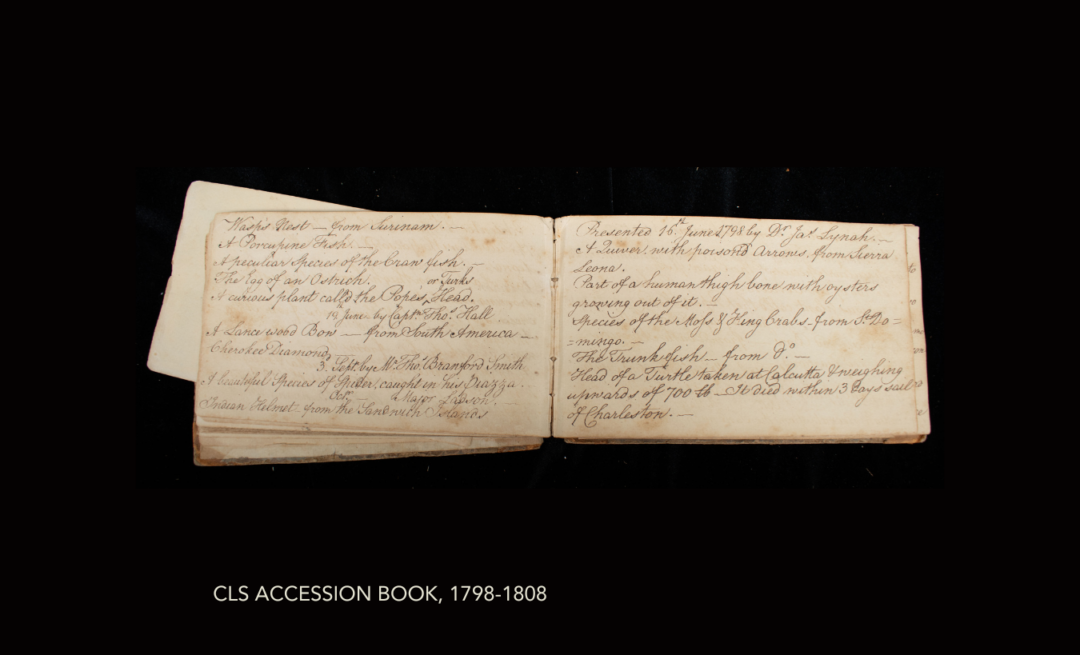 Wasps Nest — from Surinam. —
A Porcupine Fish. —
A peculiar Species of the Craw fish. —
The Egg of an Ostrich.
or Turks
A curious plant call'd the Popes Head.
18 June. by Capt.n Tho.s Hall
A Lance wood Bow — from South America —
Cherokee Diamond
3. Sept. by M.r Tho.s Branford Smith
A beautiful Species of Spider, caught in his Piazza.
Oct. Major
Indian Helmet — from the Sandwich Islands
Presented 16.th June 1798 by D.r Ja.s Lynah. —
A Quiver, with poison'd Arrows, from Sierra
Leona.
Part of a human thigh bone with oysters
growing out of it. —
Species of the Moss & King Crabs — from S.t Do=
=mingo. —
The Trunk fish — from d.o —
Head of a Turtle taken at Calcutta & weighing
upwards of 700 lb — It died within 3 days sail
of Charleston. —
CLS ACCESSION BOOK, 1798-1808